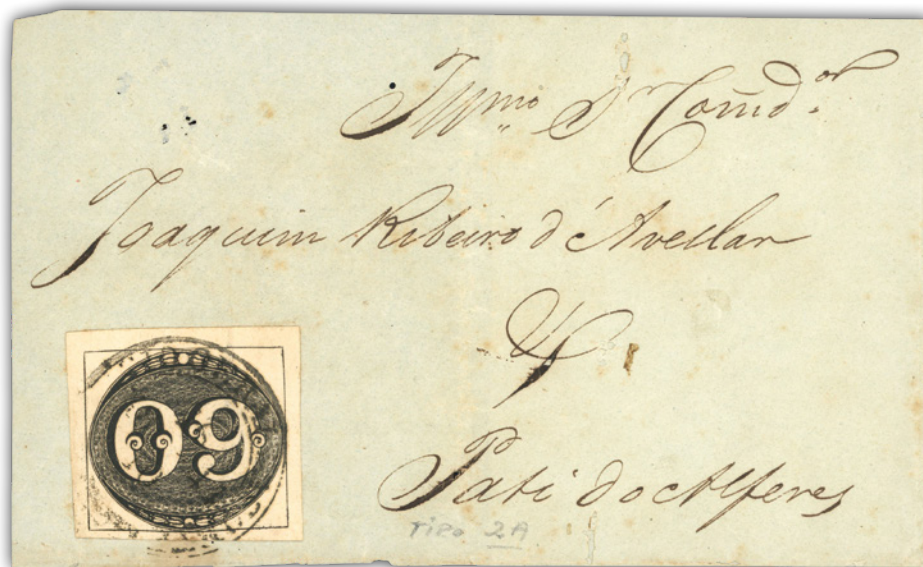 Illmo Sr Comdor
Joaquim Ribeiro d'Avellar
Pati do Alferes
TIPO 2A
60